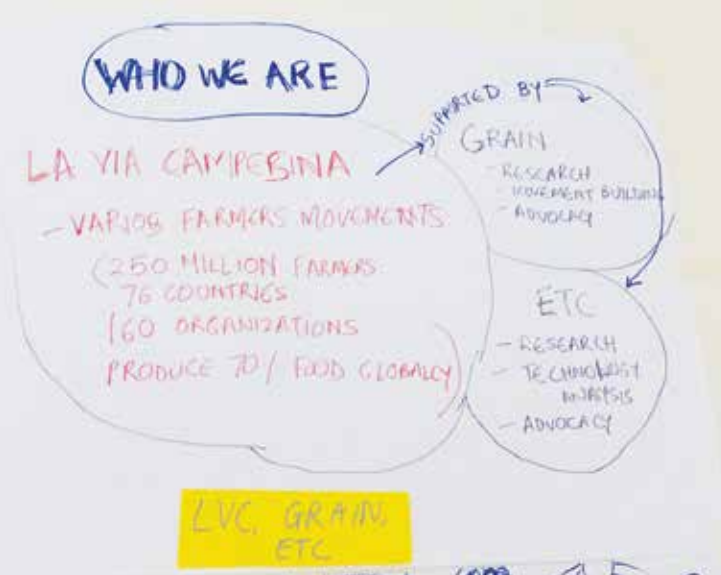 WHO WE ARE
LA VIA CAMPEBINA
- VARIOS FARMERS MOVEMENTS
(250 MILLION FARMERS
76 COUNTRIES
160 ORGANIZATIONS
PRODUCE 70/ FOOD GLOBALLY)
SUPPORTED BY
GRAIN
- RESEARCH
- MOVEMENT BUILDING
- ADVOCACY
ETC
- RESEARCH
- TECHNOLOGY
ANALYSIS
- ADVOCACY
LVC, GRAIN,
ETC